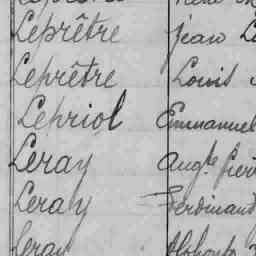 Leprêtre Jean
Leprêtre Louis
Lepriol Emmanuel
Leray Augte
Leray Ferdinand
Leray Alphonse